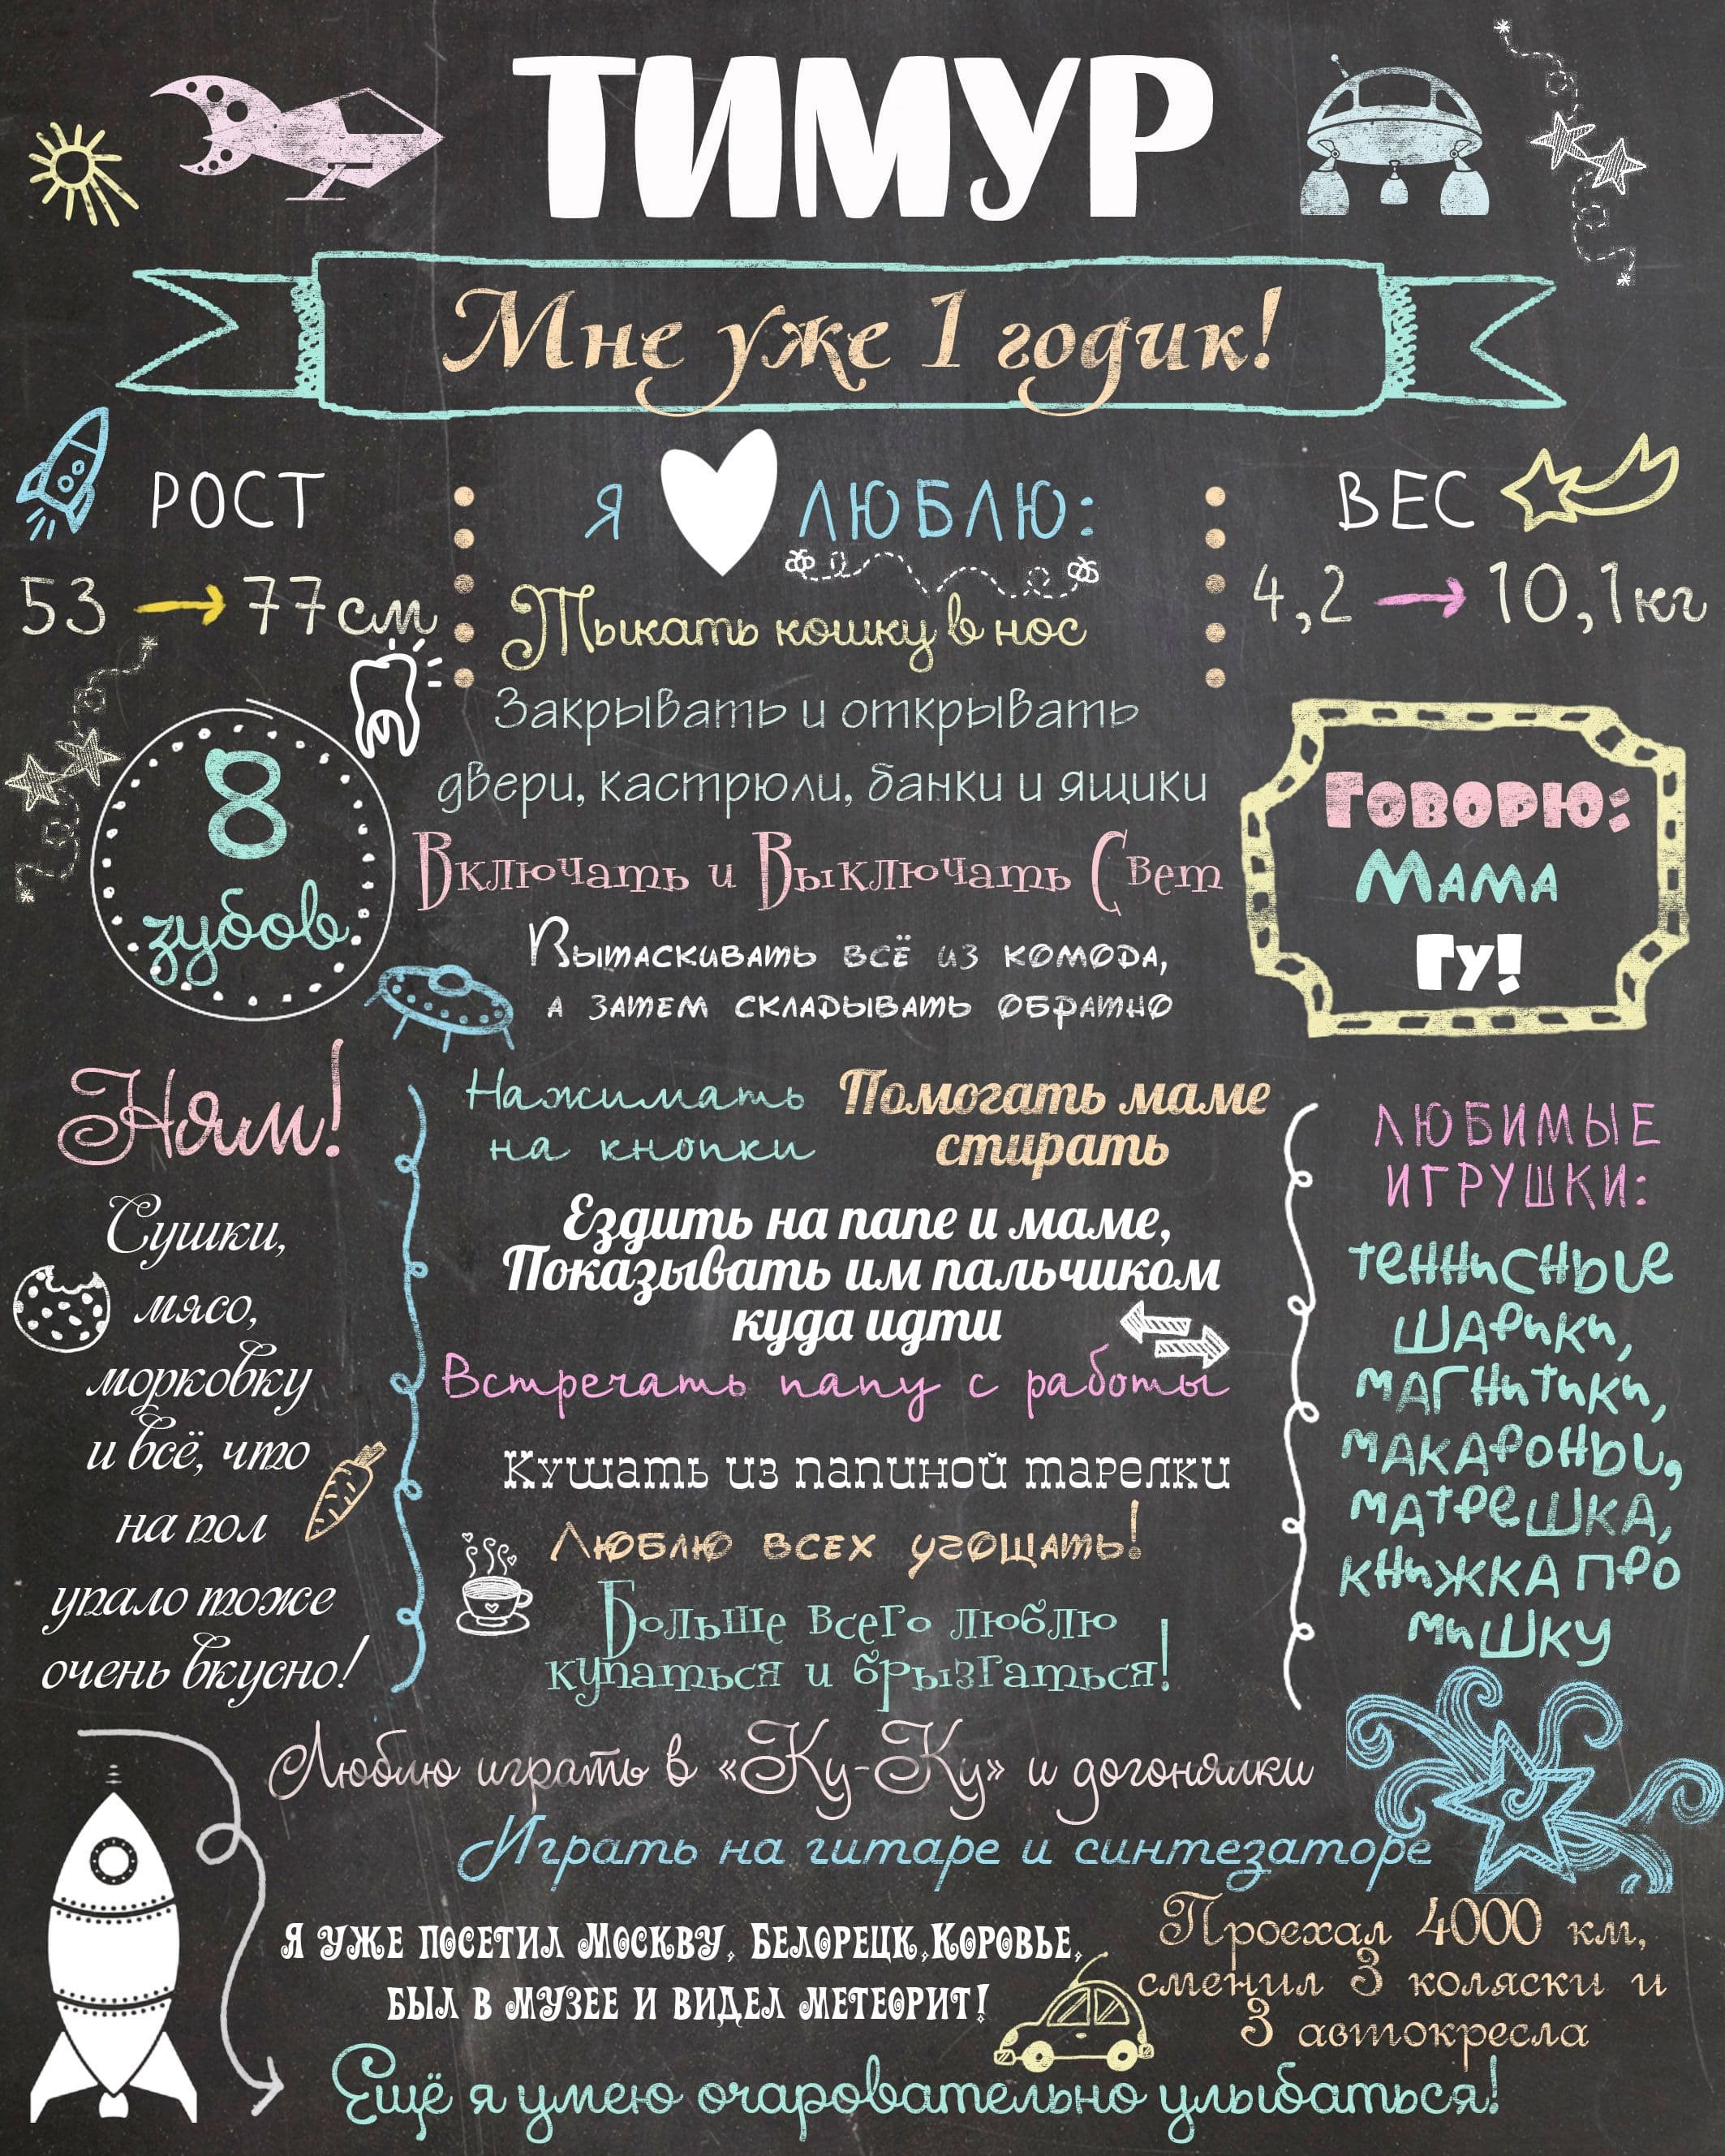 ТИМУР
Мне уже 1 годик!
РОСТ
53 → 77см
Я ЛЮБЛЮ:
ВЕС
4,2 → 10,1кг
Тыкать кошку в нос
Закрывать и открывать
двери, кастрюли, банки и ящики
Включать и Выключать Свет
Вытаскивать всё из комода,
а затем складывать обратно
8
зубов
Говорю:
Мама
Гу!
Ням!
Сушки,
мясо,
морковку
и всё, что
на пол
упало тоже
очень вкусно!
Нажимать
на кнопки
Помогать маме
стирать
Ездить на папе и маме,
Показывать им пальчиком
куда идти
Встречать папу с работы
Кушать из папиной тарелки
Люблю всех угощать!
Больше всего люблю
купаться и брызгаться!
ЛЮБИМЫЕ
ИГРУШКИ:
теннисные
шарики,
магнитики,
макароны,
матрешка,
книжка про
мишку
Люблю играть в «Ку-Ку» и догонялки
Играть на гитаре и синтезаторе
Я уже посетил Москву, Белорецк,Коровье,
был в музее и видел метеорит!
Проехал 4000 км,
сменил 3 коляски и
3 автокресла
Ещё я умею очаровательно улыбаться!